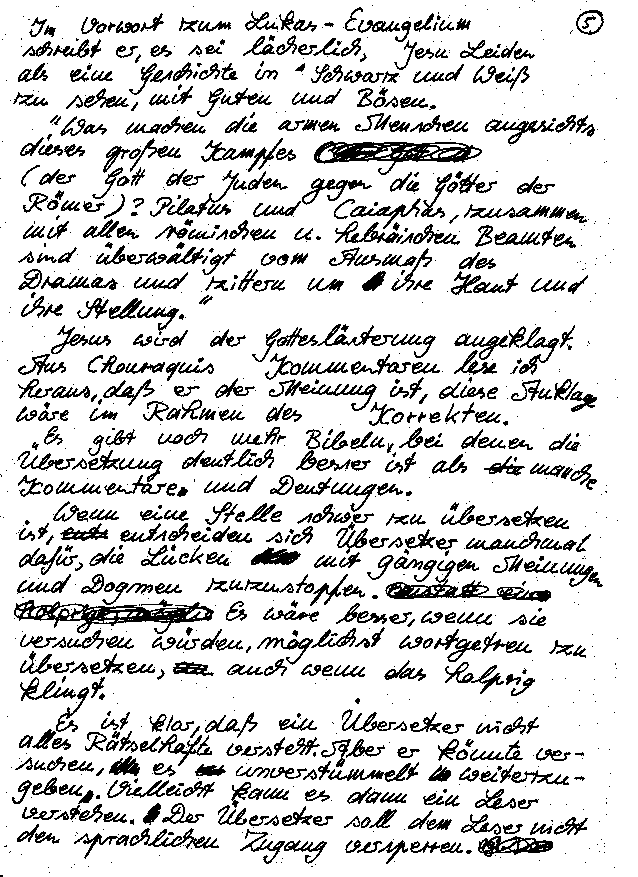 Im Vorwort zum Lukas-Evangelium
5
schreibt er, es sei lächerlich, Jesu Leiden
als eine Geschichte in "Schwarz und Weiß
zu sehen, mit Guten und Bösen.
"Was machen die armen Menschen angesichts
dieses großen Kampfes
(der Gott der Juden gegen die Götter der
Römer)? Pilatus und Caiaphas, zusammen
mit allen römischen u. hebräischen Beamten
sind überwältigt vom Ausmaß des
Dramas und zittern um ihre Haut und
ihre Stellung."
Jesus wird der Gotteslästerung angeklagt.
Aus Chouraquis Kommentaren lese ich
heraus, daß er der Meinung ist, diese Anklage
wäre im Rahmen des Korrekten.
"Es gibt noch mehr Bibeln, bei denen die
Übersetzung deutlich besser ist als manche
Kommentare und Deutungen.
Wenn eine Stelle schwer zu übersetzen
ist, entscheiden sich Übersetzer manchmal
dafür, die Lücken mit gängigen Meinungen
und Dogmen zuzustopfen.
Es wäre besser, wenn sie
versuchen würden, möglichst wortgetreu zu
übersetzen, auch wenn das holprig
klingt.
Es ist klar, daß ein Übersetzer nicht
alles Rätselhafte versteht. Aber er könnte ver-
suchen, es unverstümmelt weiterzu-
geben. Vielleicht kann es dann ein Leser
verstehen. Der Übersetzer soll dem Leser nicht
den sprachlichen Zugang versperren.